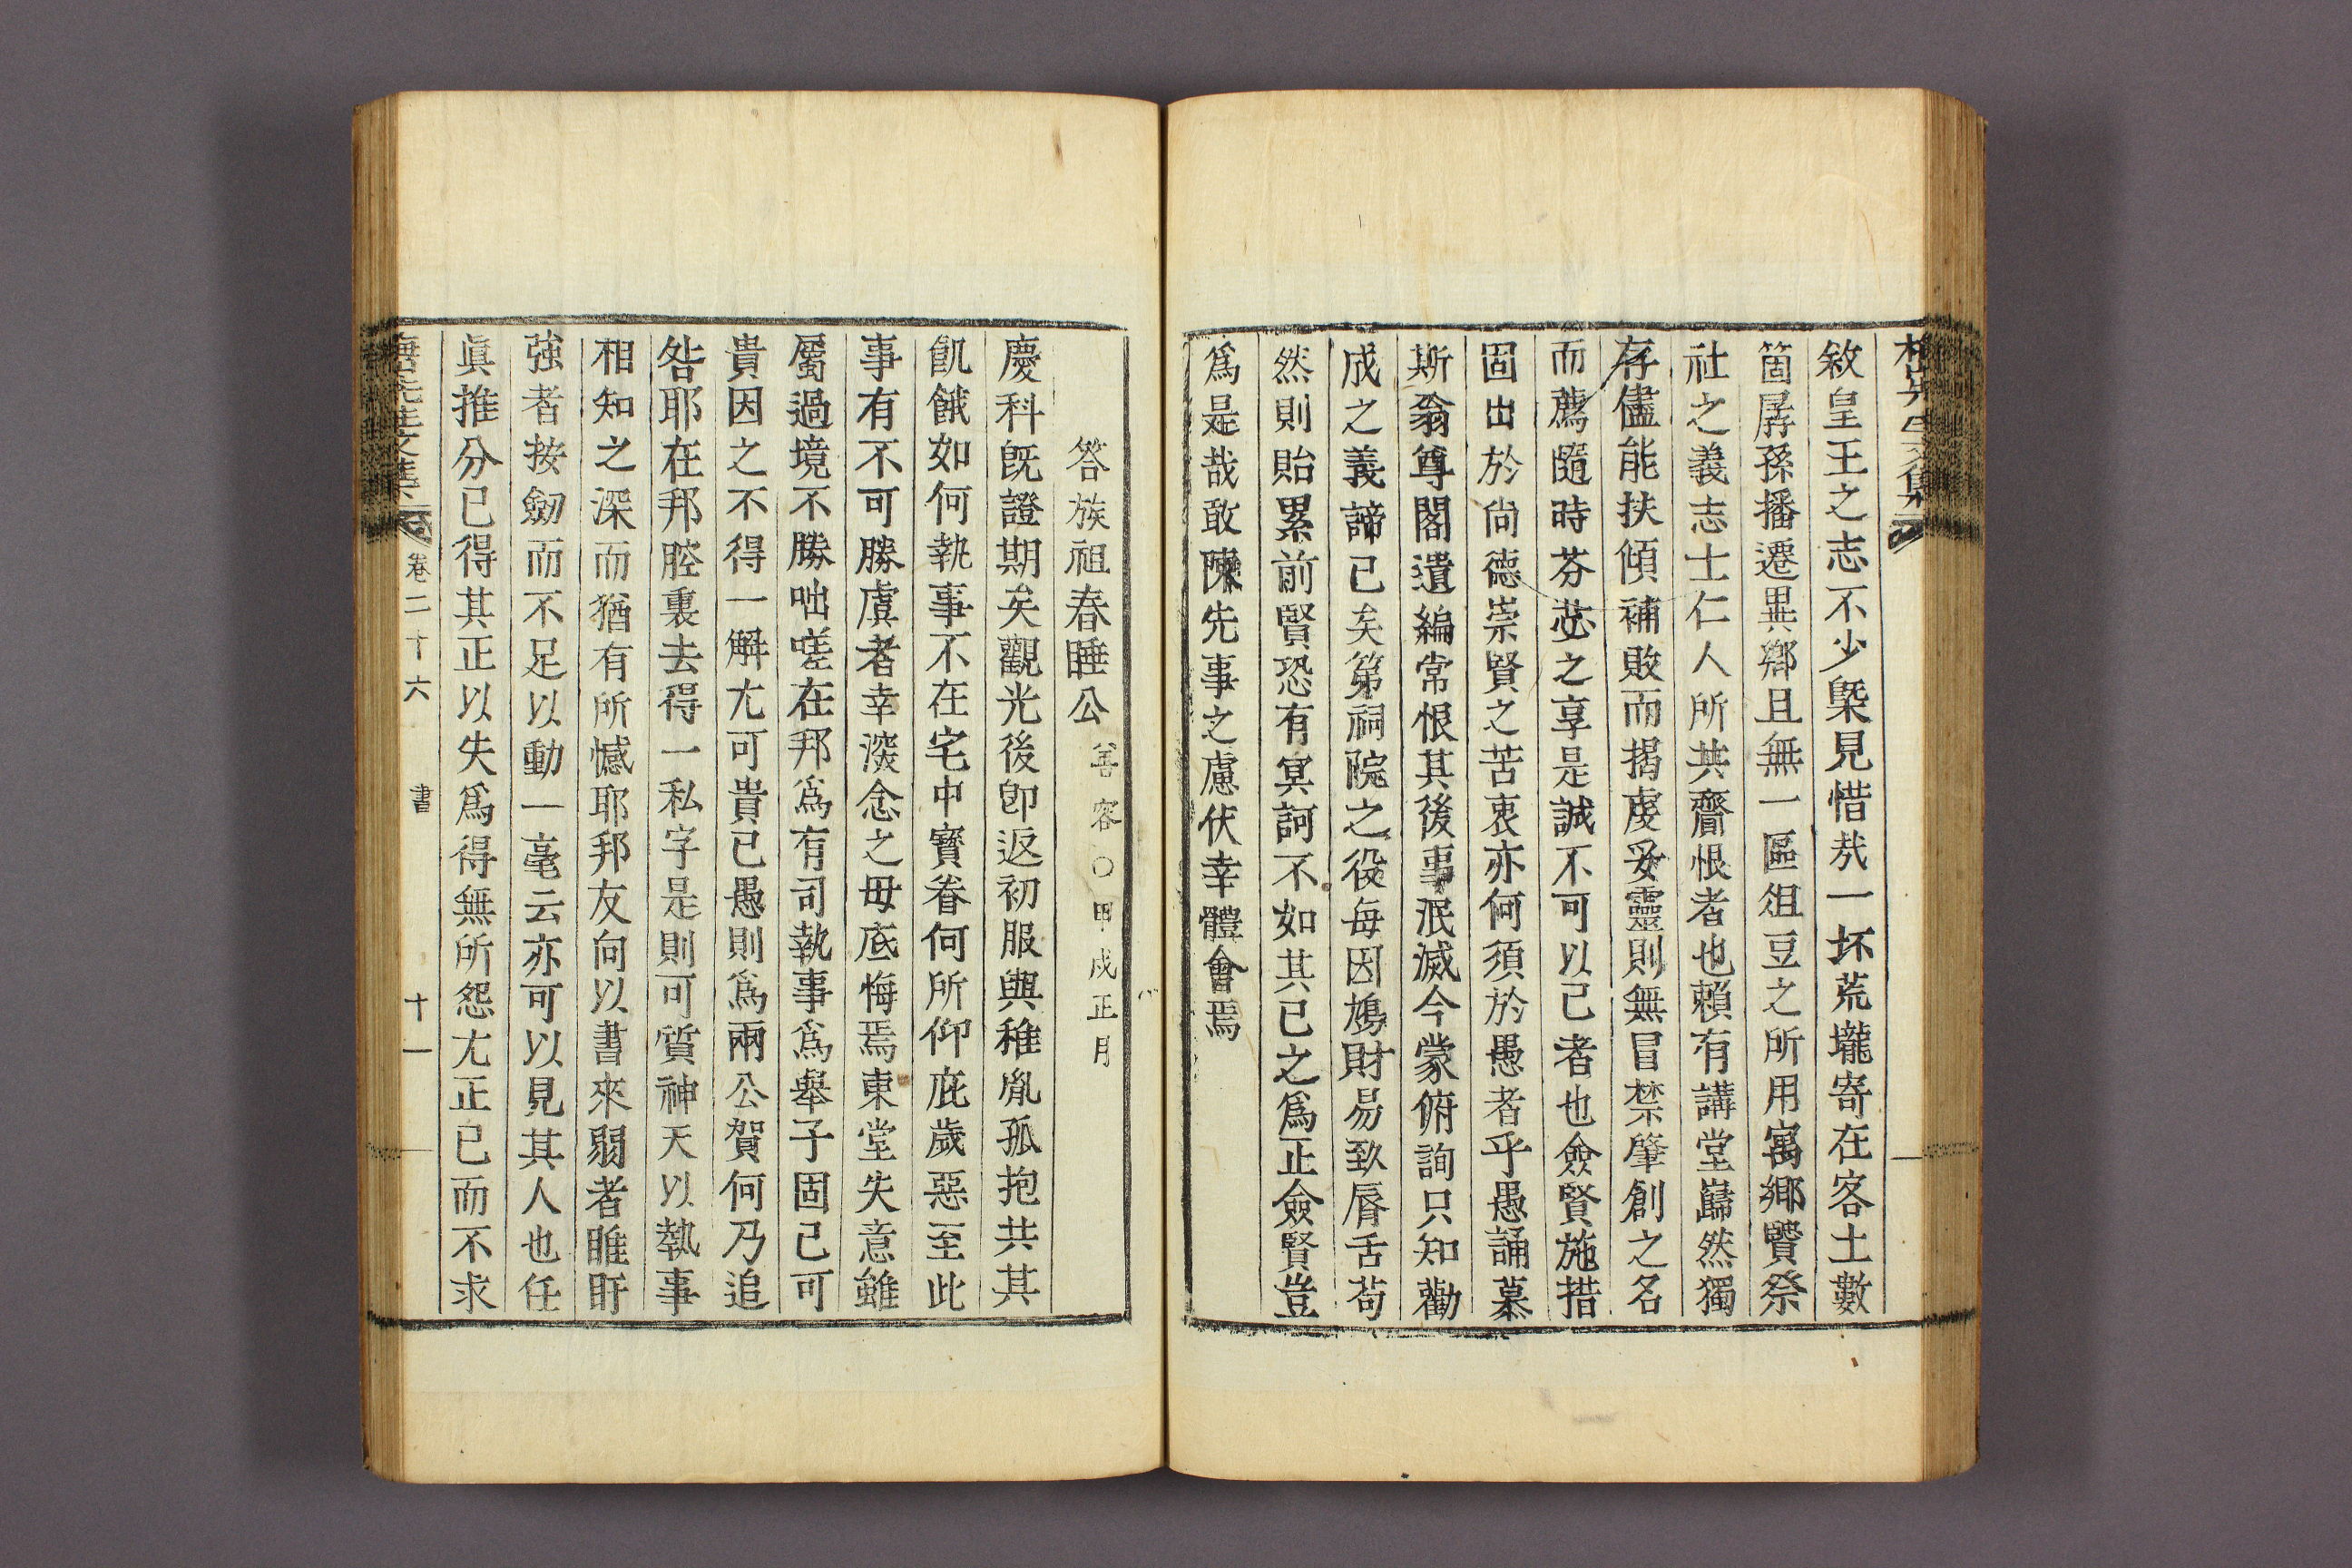 敘皇王之志不少槩見惜㢤一抔荒壠寄在客土數
箇孱孫播遷異鄕且無一區俎豆之所用寓鄕賢祭
社之義志士仁人所共齎恨者也賴有講堂巋然獨
存儘能扶傾補敗而揭虔妥靈則無冒禁肇創之名
而薦隨時芬苾之享是誠不可以已者也僉賢施措
固出於尙德崇賢之苦衷亦何須於愚者乎愚誦慕
斯翁尊閣遺編常恨其後事泯滅今蒙俯詢只知勸
成之義諦已矣第祠院之役每因鳩財易致脣舌苟
然則貽累前賢恐有冥訶不如其已之爲正僉賢豈
爲是哉敢陳先事之慮伏幸體會焉
答族祖春睡公 善容○甲戌正月
慶科旣證期矣觀光後卽返初服與稚胤孤抱共其
飢餓如何執事不在宅中寶眷何所仰庇歲惡至此
事有不可勝虞者幸淡念之毋底悔焉東堂失意雖
屬過境不勝咄嗟在邦爲有司執事爲擧子固已可
貴因之不得一解尤可貴已愚則爲兩公賀何乃追
咎耶在邦腔裏去得一私字是則可質神天以執事
相知之深而猶有所憾耶邦友向以書來弱者睢盱
強者按劒而不足以動一毫云亦可以見其人也任
眞推分已得其正以失爲得無所怨尤正已而不求
卷二十六 書 十一